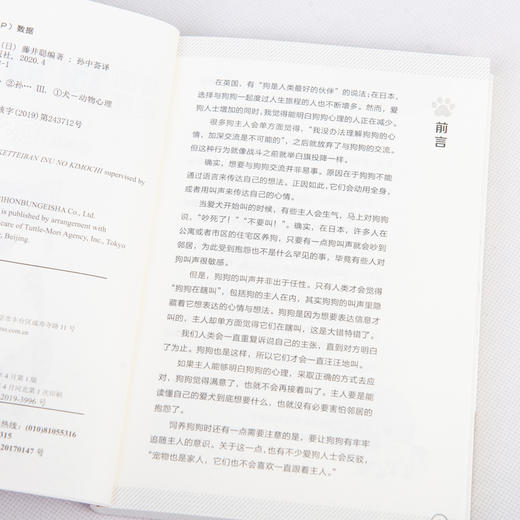 P）数据
（日）藤井聪编著；孙中荟译
版社，2020.4
-1
②孙… Ⅲ. ①犬-动物心理
字（2019）第243712号
KETTEIBAN INU NO KIMOCHI supervised by
IHONBUNGEISHA Co., Ltd.
is published by arrangement with
care of Tuttle-Mori Agency, Inc., Tokyo
Beijing.
市丰台区成寿寺路 11 号
ss.com.cn
年 4 月第 1 版
年 4 月河北第 1 次印刷
-2019-3996 号
热线：(010)81055316
315
20170147 号
前言
在英国，有“狗是人类最好的伙伴”的说法；在日本，
选择与狗狗一起度过人生旅程的人也不断增多。然而，爱
狗人士增加的同时，我觉得能明白狗狗心理的人正在减少。
很多狗狗主人会单方面觉得，“我没办法理解狗狗的心
情，加深交流是不可能的”，之后就放弃了与狗狗的交流。
但这种行为就像战斗之前就举白旗投降一样。
确实，想要与狗狗交流并非易事。原因在于狗狗不能
通过语言来传达自己的想法。正因如此，它们会动用全身，
或者用叫声来传达自己的心情。
当爱犬开始叫的时候，有些主人会生气，马上对狗狗
说，“吵死了！”“不要叫！”。确实，在日本，许多人在
公寓或者市区的住宅区养狗，只要有一点狗叫声就会吵到
邻居，为此受到抱怨也不是什么罕见的事，毕竟有些人对
狗叫声很敏感。
但是，狗狗的叫声并非出于任性。只有人类才会觉得
“狗狗在瞎叫”，包括狗的主人在内，其实狗狗的叫声里隐
藏着它想表达的心情与想法。狗狗是因为想要表达信息才
叫的，主人却单方面觉得它们在瞎叫，这是大错特错了。
我们人类会一直重复诉说自己的主张，直到对方明白
了为止。狗狗也是这样，所以它们才会一直汪汪地叫。
如果主人能够明白狗狗的心理，采取正确的方式去应
对，狗狗觉得满意了，也就不会再接着叫了。主人要是能
读懂自己的爱犬到底想要什么，也就没有必要害怕邻居的
抱怨了。
饲养狗狗时还有一点需要注意的是，要让狗狗有牢牢
追随主人的意识。关于这一点，也有不少爱狗人士会反驳，
“宠物也是家人，它们也不会喜欢一直跟着主人。”